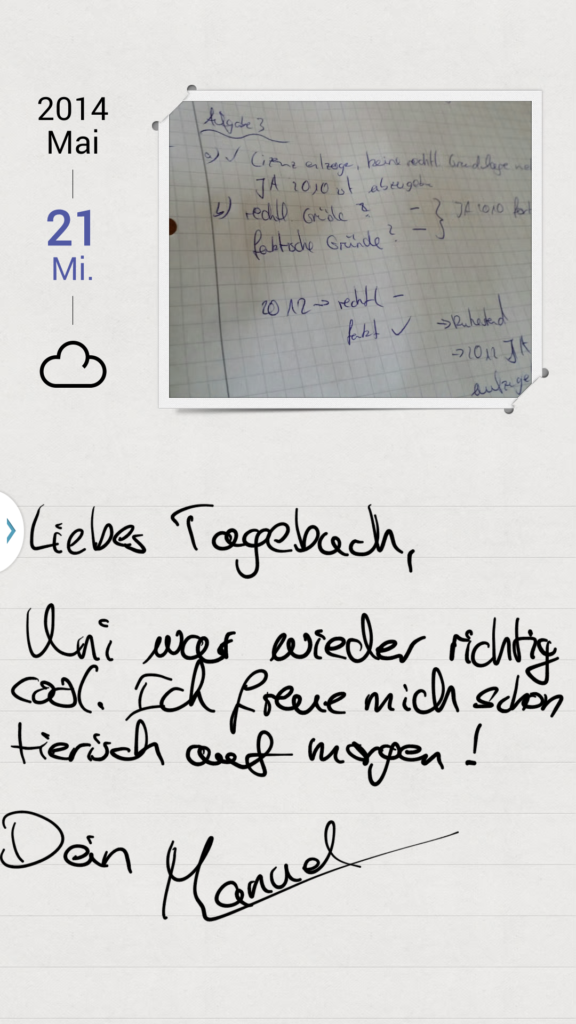 2014
Mai
21
Mi.
Aufgabe 3
a) ✓ Lizenz anzeige, keine rechtl Grundlage
JA 2010 ist abzugeben
b) rechtl Gründe? – } JA 2010
faktische Gründe? –
2012 → rechtl –
fakt ✓ → Ruhestand
→ 2012 JA
Liebes Tagebuch,
Uni war wieder richtig
cool. Ich freue mich schon
tierisch auf morgen!
Dein Manuel